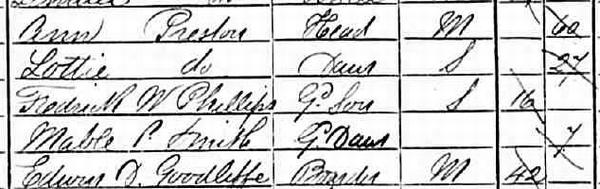 Ann Preston Head M 60
Lottie do Daur S 27
Fredrick W Phillips Gd Son S 16
Mable P Smith G Daur 7
Edwin D. Goodliffe Boarder M 42